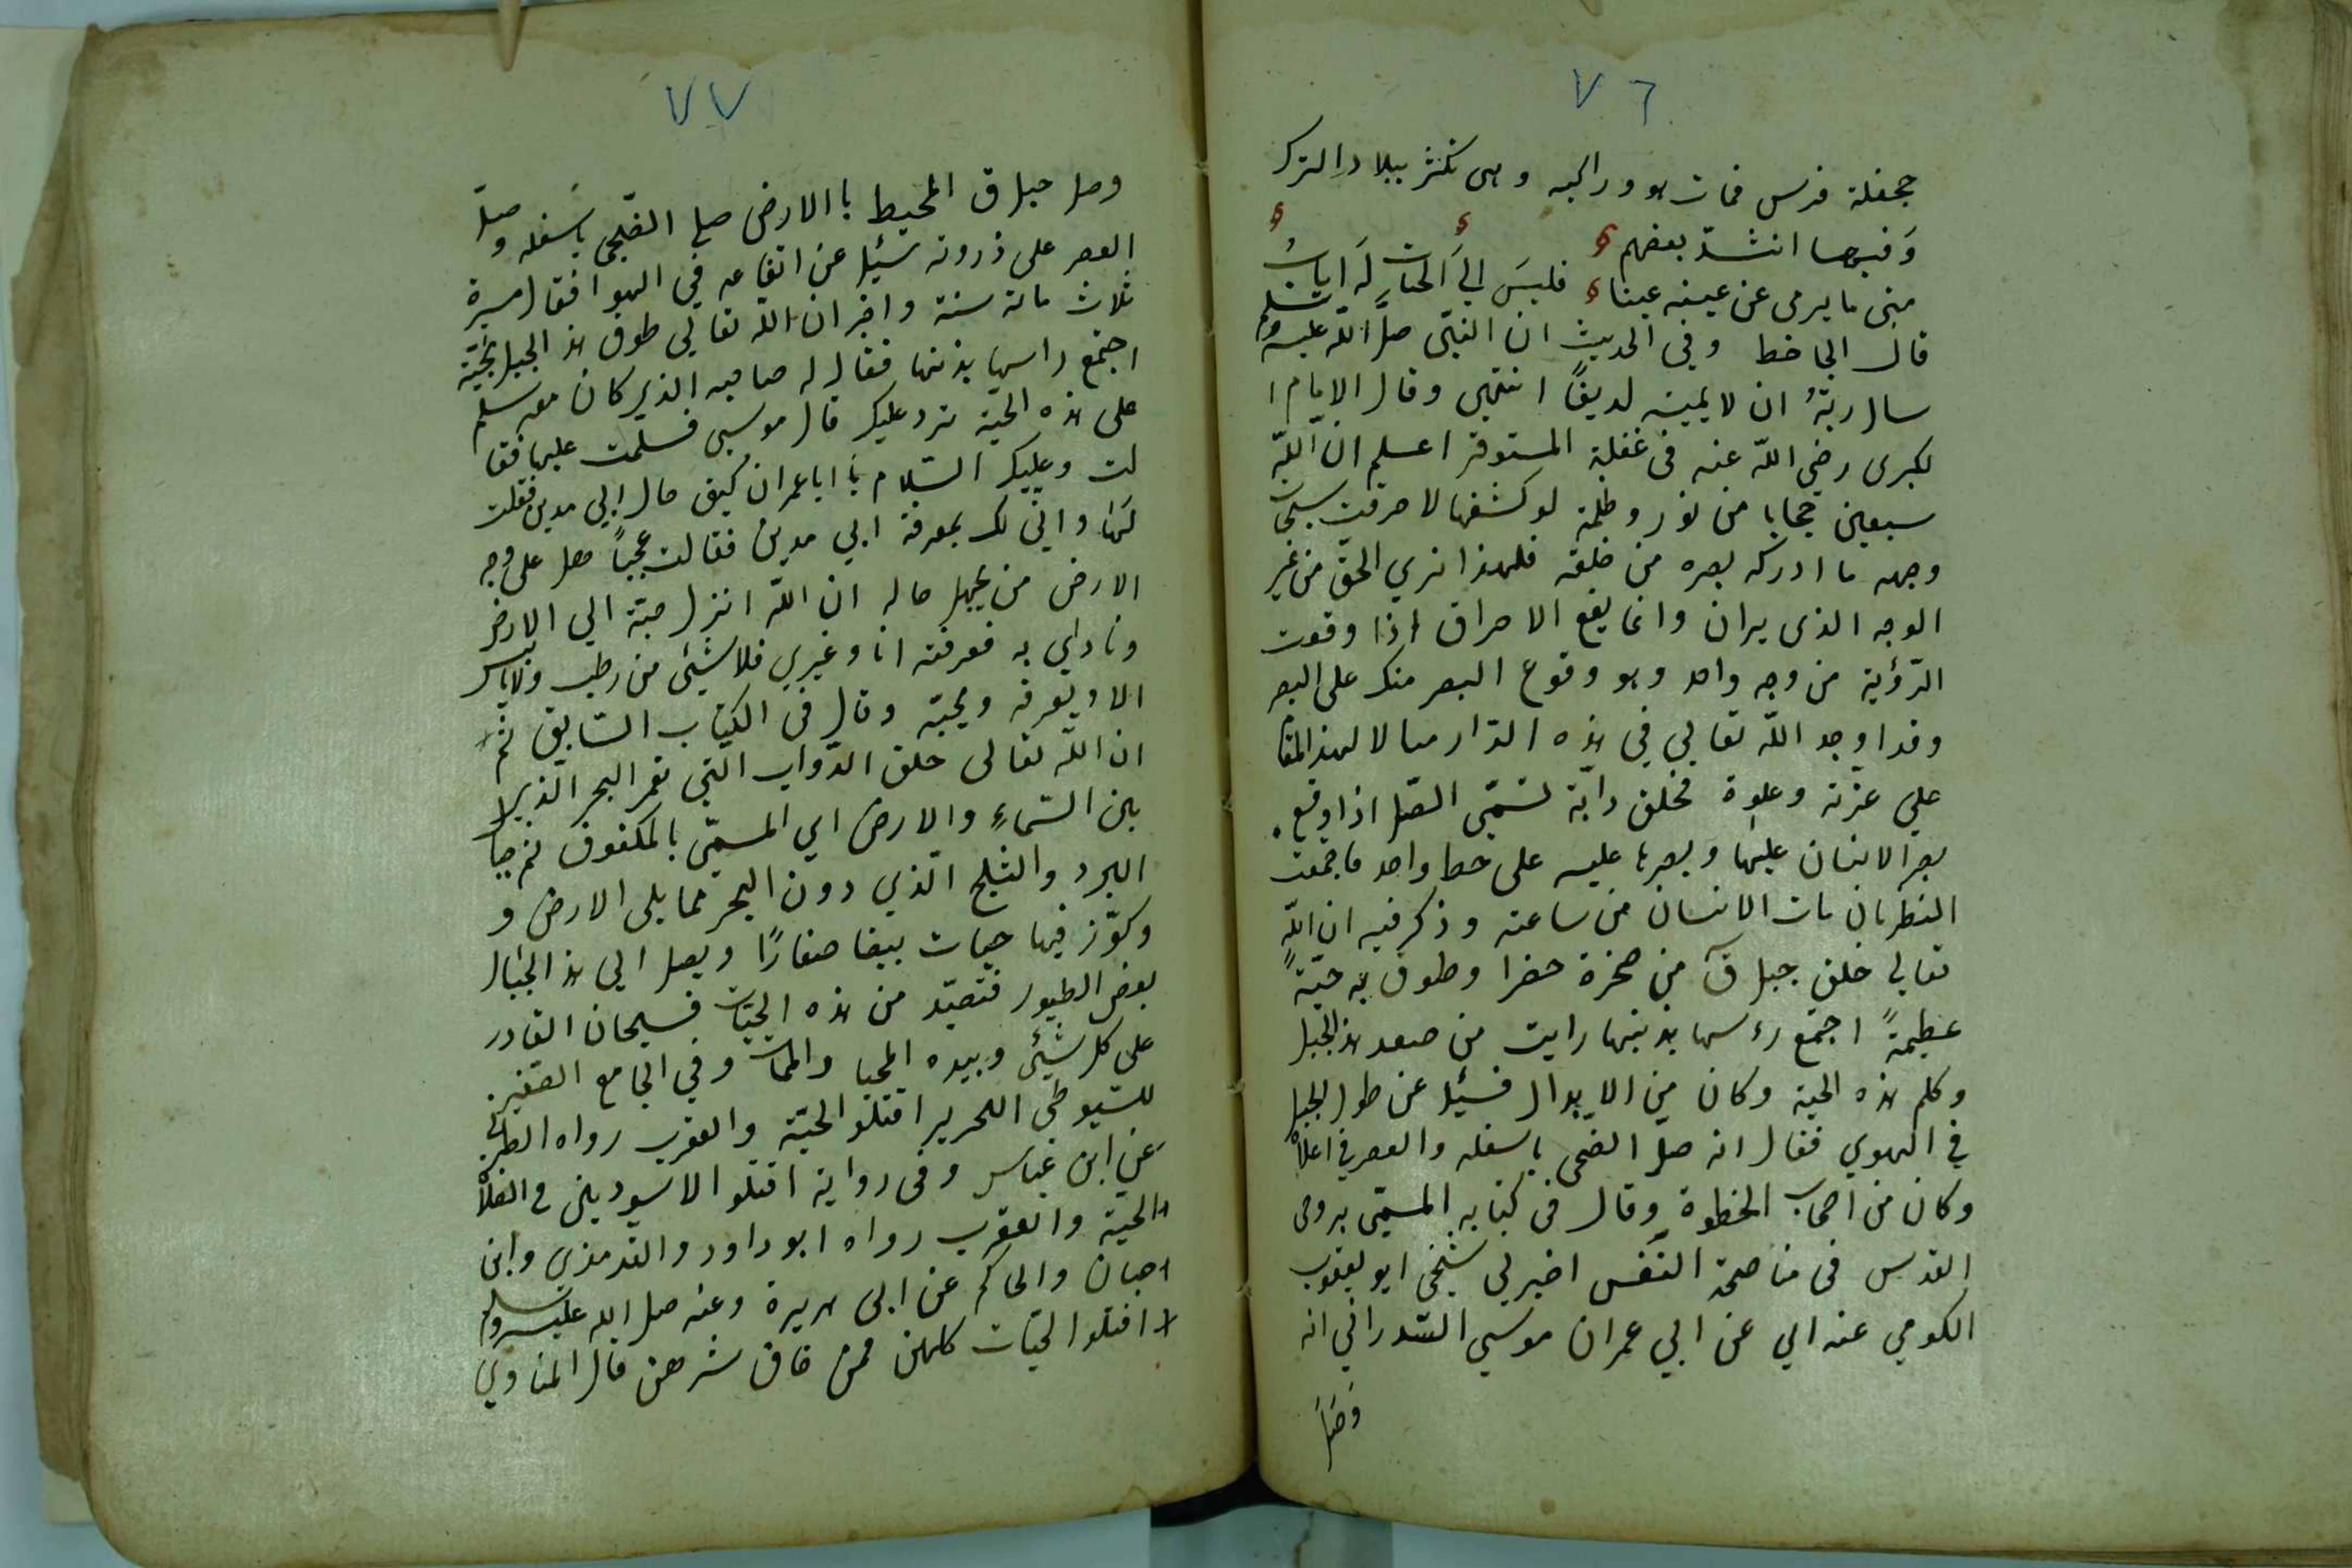 ٧٦
جحفلة فرس فمات هو وراكبه وهى تكثر ببلاد الترك
وَفيها انشد بعضهم
متى ما يرمى عن عينه عينا فليسَ الىَ الحيات لَه ايابُ
قال الجاحظ وفي الحديث ان النبّى صلَّ اللّه عليه وسلم
سال ربّهُ ان لا يميته لديغًا انتهى وقال الامام ا
لكبرى رضى اللّه عنه فى غفلة المستوفز اعلم ان للّه
سبعين حجابا من نور وظلمة لو كشفها لاحرقت سبحات
وجهه ما ادركه بصره من خلقه فلهذا نري الحقّ من غير
الوجه الذى يران وانما يقع الاحراق اذا وقعت
الرّؤية من وجه واحد وهو وقوع البصر منك على البصر
وقد اوجد اللّه تعالي في هذه الدّار مثالا لهذ المقا
علي عزّته وعلوة فخلق دابّة تسّمّى الصّل اذا وقع
بصر الانسان عليها وبصرها عليه على خط واحد فاجتمعت
النظرتان مات الانسان من ساعته وذكر فيه ان اللّه
تعالي خلق جبل قٓ من صخرة خضرا وطوق به حيّةً
عظيمةً اجتمع رءسها بذنبها رايت من صعد هذ الجبل
وكلم هذه الحية وكان من الابدال فسئيل عن طول الجبل
في الهوي فقال انه صلّ الضحى باسفله والعصر في اعلاهْ
وكان من اصحاب الخطوة وقال فى كتابه المسمّى بروح
القدس فى مناصحة النّفس اخبرني شيخى ابو يعقوب
الكومي عنه ابي عن ابي عمران موسي السّدراني انه
وصَل
٧٧
وصل جبل ق المحيط باالارض صلي الضّحى باسفله وصلّ
العصر على ذروته سئيل عن اتفاعه في الهوا فقال مسيرة
ثلاث مائة سنة واخبر ان اللّه تعالي طوق هذ الجبل بحيّة
اجتمع راسها بذنبها فقال له صاحبه الذي كان معه سلم
على هذه الحيّة ترد عليك قال موسى فسلمت عليها فقا
لت وعليك السّلام يَا اباعمران كيف حال ابي مدين فقلت
لَهَا وانّي لك بمعرفة ابي مدين فقالت عجبًا هل على وجه
الارض من يجهل حاله ان اللّه انزل حبّه الي الارض
ونادي به فعرفته انا وغيري فلا شيئى من رطب ولا يابس
الا ويعرفه ويحبّه وقال فى الكتاب السّابق ثمَّ
ان اللّه تعالى خلق الدّواب التّي تعمر البحر الّذي
بين السّماءِ والارض اي المسمّى بالمكفوف ثم جبا
البرد والثلج الّذي دون البحر مما يلى الارض و
وكوّز فيها حيات بيضا صغارًا ويصل الي هذ الجبال
بعض الطيور فتصيّد من هذه الحيّات فسبحان القادر
على كل شيئى وبيده المحيا والمماتَ وفي الجامع الصّغير
للسّيوطى اللحرير اقتلو الحيّة والعقرب رواه الطبراني
عن ابن عبّاس وفى رواية اقتلو الاسودين فى الصّلاةْ
الحية والعقرب رواه ابو داود والترمذي وابن
حبان والحاكم عن ابى هريرة وعنه صل الله عليه وسلم
اقتلو الحيّات كلهن فمن خاف شرهن قال المناوي